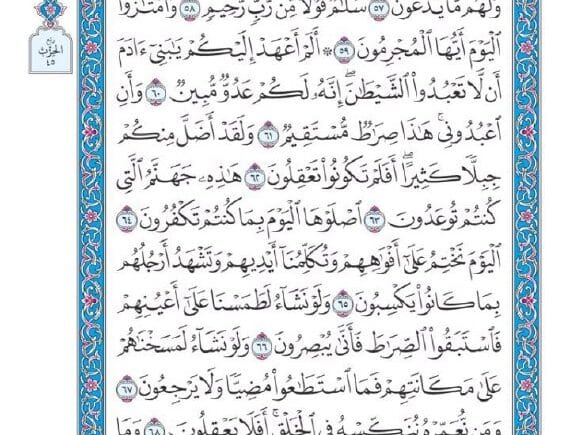 وَلَهُم مَّا يَدَّعُونَ ٥٧ سَلَٰمٌ قَوْلًا مِّن رَّبٍّ رَّحِيمٍ ٥٨ وَٱمْتَٰزُوا۟
ٱلْيَوْمَ أَيُّهَا ٱلْمُجْرِمُونَ ٥٩ ۞ أَلَمْ أَعْهَدْ إِلَيْكُمْ يَٰبَنِىٓ ءَادَمَ
أَن لَّا تَعْبُدُوا۟ ٱلشَّيْطَٰنَ ۖ إِنَّهُۥ لَكُمْ عَدُوٌّ مُّبِينٌ ٦٠ وَأَنِ
ٱعْبُدُونِى ۚ هَٰذَا صِرَٰطٌ مُّسْتَقِيمٌ ٦١ وَلَقَدْ أَضَلَّ مِنكُمْ
جِبِلًّا كَثِيرًا ۖ أَفَلَمْ تَكُونُوا۟ تَعْقِلُونَ ٦٢ هَٰذِهِۦ جَهَنَّمُ ٱلَّتِى
كُنتُمْ تُوعَدُونَ ٦٣ ٱصْلَوْهَا ٱلْيَوْمَ بِمَا كُنتُمْ تَكْفُرُونَ ٦٤
ٱلْيَوْمَ نَخْتِمُ عَلَىٰٓ أَفْوَٰهِهِمْ وَتُكَلِّمُنَآ أَيْدِيهِمْ وَتَشْهَدُ أَرْجُلُهُم
بِمَا كَانُوا۟ يَكْسِبُونَ ٦٥ وَلَوْ نَشَآءُ لَطَمَسْنَا عَلَىٰٓ أَعْيُنِهِمْ
فَٱسْتَبَقُوا۟ ٱلصِّرَٰطَ فَأَنَّىٰ يُبْصِرُونَ ٦٦ وَلَوْ نَشَآءُ لَمَسَخْنَٰهُمْ
عَلَىٰ مَكَانَتِهِمْ فَمَا ٱسْتَطَٰعُوا۟ مُضِيًّا وَلَا يَرْجِعُونَ ٦٧
وَمَن نُّعَمِّرْهُ نُنَكِّسْهُ فِى ٱلْخَلْقِ ۖ أَفَلَا يَعْقِلُونَ ٦٨ وَمَا
ربع
الحزب
٤٥